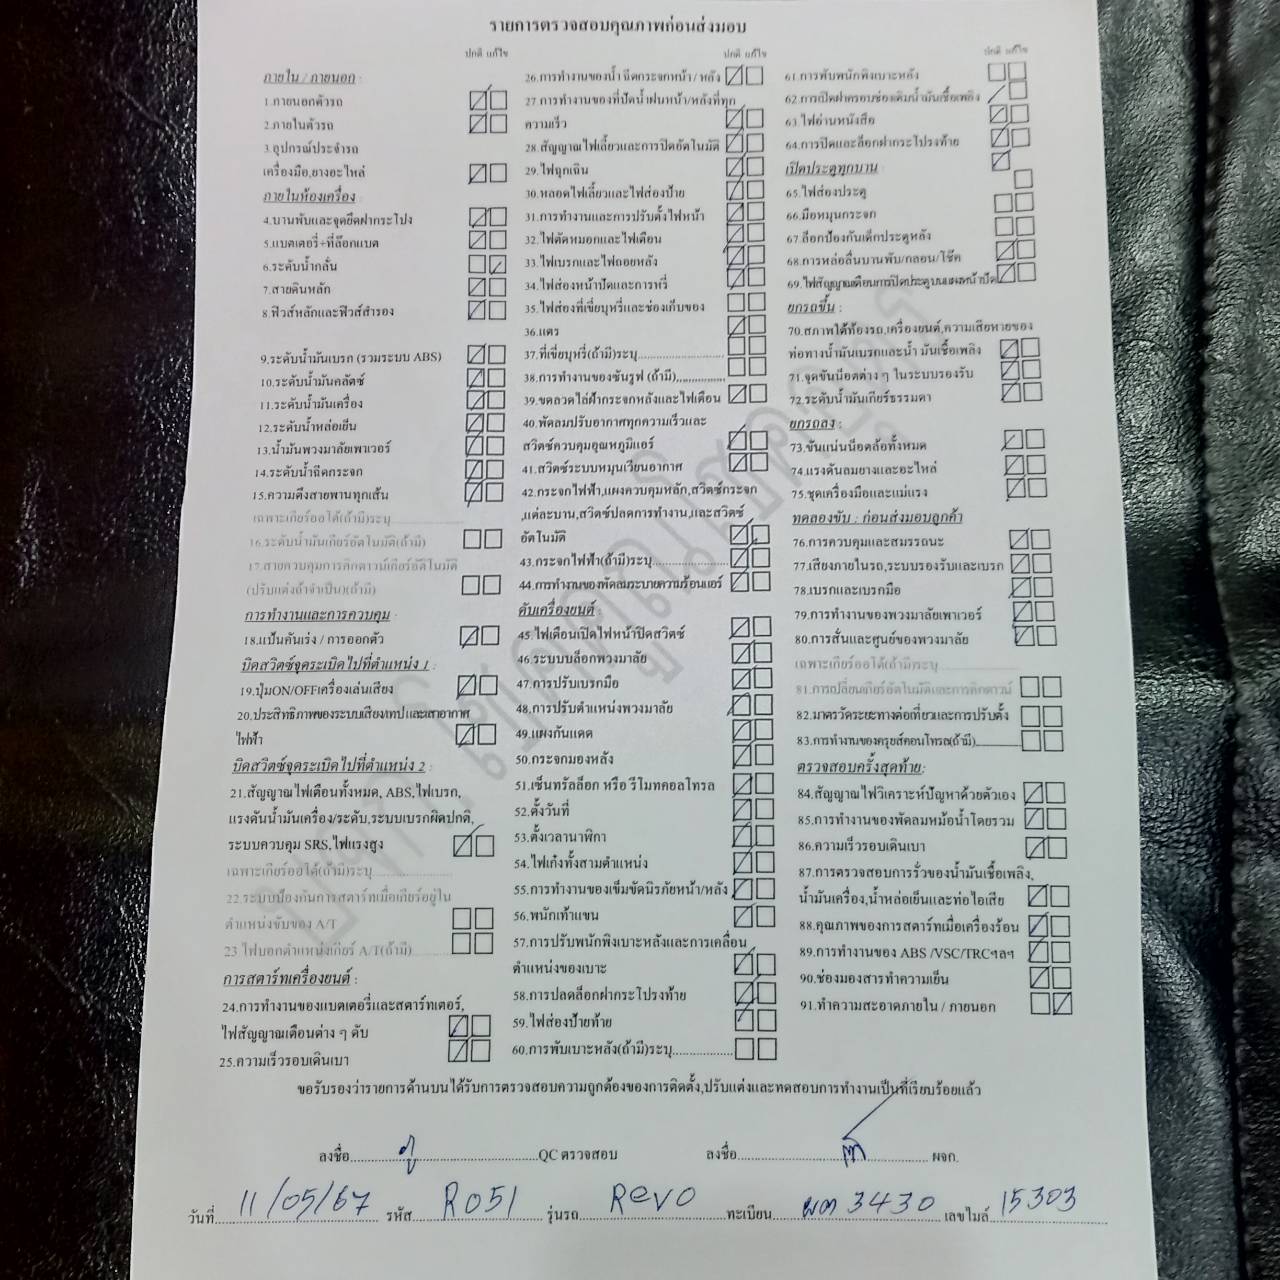 รายการตรวจสอบคุณภาพก่อนส่งมอบ
ปกติ แก้ไข
ภายใน / ภายนอก :
1.ภายนอกตัวรถ
2.ภายในตัวรถ
3.อุปกรณ์ประจำรถ
เครื่องมือ,ยางอะไหล่
ภายในห้องเครื่อง
4.บานพับและจุดยึดฝากระโปง
5.แบตเตอรี่+ที่ล็อกแบต
6.ระดับน้ำกลั่น
7.สายดินหลัก
8.ฟิวส์หลักและฟิวส์สำรอง
9.ระดับน้ำมันเบรก (รวมระบบ ABS)
10.ระดับน้ำมันคลัตซ์
11.ระดับน้ำมันเครื่อง
12.ระดับน้ำหล่อเย็น
13.น้ำมันพวงมาลัยเพาเวอร์
14.ระดับน้ำฉีดกระจก
15.ความตึงสายพานทุกเส้น
เฉพาะเกียร์ออโต้(ถ้ามี)ระบุ
16.ระดับน้ำมันเกียร์อัตโนมัติ(ถ้ามี)
17.สายควบคุมการคิกดาวน์เกียร์อัตโนมัติ
(ปรับแต่งถ้าจำเป็น)(ถ้ามี)
การทำงานและการควบคุม :
18.แป้นคันเร่ง / การออกตัว
บิดสวิตซ์จุดระเบิดไปที่ตำแหน่ง 1 :
19.ปุ่มON/OFFเครื่องเล่นเสียง
20.ประสิทธิภาพของระบบเสียง/เทปและเสาอากาศ
ไฟฟ้า
บิดสวิตซ์จุดระเบิดไปที่ตำแหน่ง 2 :
21.สัญญาณไฟเตือนทั้งหมด, ABS,ไฟเบรก,
แรงดันน้ำมันเครื่อง/ระดับ,ระบบเบรกผิดปกติ,
ระบบควบคุม SRS,ไฟแรงสูง
เฉพาะเกียร์ออโต้(ถ้ามี)ระบุ
22.ระบบป้องกันการสตาร์ทเมื่อเกียร์อยู่ใน
ตำแหน่งขับของ A/T
23 ไฟบอกตำแหน่งเกียร์ A/T(ถ้ามี)
การสตาร์ทเครื่องยนต์ :
24.การทำงานของแบตเตอรี่และสตาร์ทเตอร์,
ไฟสัญญาณเตือนต่าง ๆ ดับ
25.ความเร็วรอบเดินเบา
ปกติ แก้ไข
26.การทำงานของน้ำ ฉีดกระจกหน้า / หลัง
27 การทำงานของที่ปัดน้ำฝนหน้า/หลังที่ทุก
ความเร็ว
28.สัญญาณไฟเลี้ยวและการปิดอัตโนมัติ
29.ไฟฉุกเฉิน
30.หลอดไฟเลี้ยวและไฟส่องป้าย
31.การทำงานและการปรับตั้งไฟหน้า
32.ไฟตัดหมอกและไฟเตือน
33.ไฟเบรกและไฟถอยหลัง
34.ไฟส่องหน้าปัดและการหรี่
35.ไฟส่องที่เขี่ยบุหรี่และช่องเก็บของ
36.แตร
37.ที่เขี่ยบุหรี่(ถ้ามี)ระบุ
38.การทำงานของซันรูฟ (ถ้ามี)
39.ขดลวดไล่ฝ้ากระจกหลังและไฟเตือน
40.พัดลมปรับอากาศทุกความเร็วและ
สวิตซ์ควบคุมอุณหภูมิแอร์
41.สวิตซ์ระบบหมุนเวียนอากาศ
42.กระจกไฟฟ้า,แผงควบคุมหลัก,สวิตซ์กระจก
,แต่ละบาน,สวิตซ์ปลดการทำงาน,และสวิตซ์
อัตโนมัติ
43.กระจกไฟฟ้า(ถ้ามี)ระบุ
44.การทำงานของพัดลมระบายความร้อนแอร์
ดับเครื่องยนต์ :
45.ไฟเตือนเปิดไฟหน้าปิดสวิตซ์
46.ระบบบล็อกพวงมาลัย
47.การปรับเบรกมือ
48.การปรับตำแหน่งพวงมาลัย
49.แผงกันแดด
50.กระจกมองหลัง
51.เซ็นทรัลล็อก หรือ รีโมทคอลโทรล
52.ตั้งวันที่
53.ตั้งเวลานาฬิกา
54.ไฟเก๋งทั้งสามตำแหน่ง
55.การทำงานของเข็มขัดนิรภัยหน้า/หลัง
56.พนักเท้าแขน
57.การปรับพนักพิงเบาะหลังและการเคลื่อน
ตำแหน่งของเบาะ
58.การปลดล็อกฝากระโปรงท้าย
59.ไฟส่องป้ายท้าย
60.การพับเบาะหลัง(ถ้ามี)ระบุ
ปกติ แก้ไข
61.การพับพนักพิงเบาะหลัง
62.การเปิดฝาครอบช่องเติมน้ำมันเชื้อเพลิง
63.ไฟอ่านหนังสือ
64.การปิดและล็อกฝากระโปรงท้าย
เปิดประตูทุกบาน :
65.ไฟส่องประตู
66.มือหมุนกระจก
67.ล็อกป้องกันเด็กประตูหลัง
68.การหล่อลื่นบานพับ/กลอน/โช๊ค
69.ไฟสัญญาณเตือนการปิดประตูบนแผงหน้าปัด
ยกรถขึ้น :
70.สภาพใต้ท้องรถ,เครื่องยนต์,ความเสียหายของ
ท่อทางน้ำมันเบรกและน้ำ มันเชื้อเพลิง
71.จุดขันน๊อตต่าง ๆ ในระบบรองรับ
72.ระดับน้ำมันเกียร์ธรรมดา
ยกรถลง :
73.ขันแน่นน็อตล้อทั้งหมด
74.แรงดันลมยางและอะไหล่
75.ชุดเครื่องมือและแม่แรง
ทดลองขับ : ก่อนส่งมอบลูกค้า
76.การควบคุมและสมรรถนะ
77.เสียงภายในรถ,ระบบรองรับและเบรก
78.เบรกและเบรกมือ
79.การทำงานของพวงมาลัยเพาเวอร์
80.การสั่นและศูนย์ของพวงมาลัย
เฉพาะเกียร์ออโต้(ถ้ามี)ระบุ
81.การเปลี่ยนเกียร์อัตโนมัติและการคิกดาวน์
82.มาตรวัดระยะทางต่อเที่ยวและการปรับตั้ง
83.การทำงานของครุยส์คอนโทรล(ถ้ามี)
ตรวจสอบครั้งสุดท้าย:
84.สัญญาณไฟวิเคราะห์ปัญหาด้วยตัวเอง
85.การทำงานของพัดลมหม้อน้ำโดยรวม
86.ความเร็วรอบเดินเบา
87.การตรวจสอบการรั่วของน้ำมันเชื้อเพลิง,
น้ำมันเครื่อง,น้ำหล่อเย็นและท่อไอเสีย
88.คุณภาพของการสตาร์ทเมื่อเครื่องร้อน
89.การทำงานของ ABS /VSC/TRCฯลฯ
90.ช่องมองสารทำความเย็น
91.ทำความสะอาดภายใน / ภายนอก
ขอรับรองว่ารายการด้านบนได้รับการตรวจสอบความถูกต้องของการติดตั้ง,ปรับแต่งและทดสอบการทำงานเป็นที่เรียบร้อยแล้ว
ลงชื่อ QC ตรวจสอบ ลงชื่อ ผจก.
วันที่ 11/05/67 รหัส R051 รุ่นรถ Revo ทะเบียน ผต 3430 เลขไมล์ 15303